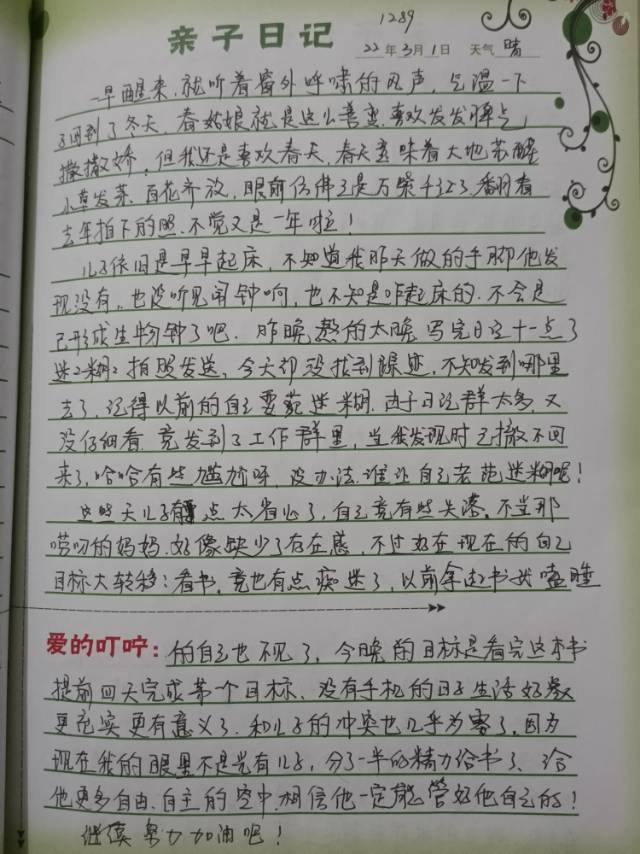 1289
亲子日记
22年3月1日 天气 晴
一早醒来,就听着窗外呼啸的风声,气温一下
子回到了冬天,春姑娘就是这么善变,喜欢发发脾气
撒撒娇,但我还是喜欢春天,春天意味着大地苏醒
小草发芽,百花齐放,眼前仿佛已是万紫千红了,翻看着
去年拍下的照,不觉又是一年啦!
儿子依旧是早早起床,不知道我昨天做的手脚他发
现没有,也没听见闹钟响,也不知是咋起床的.不会是
已形成生物钟了吧.昨晚熬的太晚,写完日记十一点了
迷迷糊糊拍照发送,今天却没找到踪迹,不知发到哪里
去了,记得以前的自己要范迷糊.由于日记群太多,又
没仔细看.竟发到了工作群里,当我发现时已撤不回
来了,哈哈有些尴尬呀,没办法.谁让自己老范迷糊呢!
这些天儿子有点太省心了,自己竟有些失落.不当那
唠叨的妈妈.好像缺少了存在感,不过好在现在的自己
目标大转移:看书,竟也有点痴迷了,以前拿起书就瞌睡
爱的叮咛:的自己也不见了,今晚的目标是看完这本书
提前四天完成第一个目标,没有手机的日子生活好像
更充实更有意义了.和儿子的冲突也几乎为零了,因为
现在我的眼里不是光有儿子,分了一半的精力给书了、给
他更多自由.自主的空中,相信他一定能管好他自己的!
继续努力加油吧!